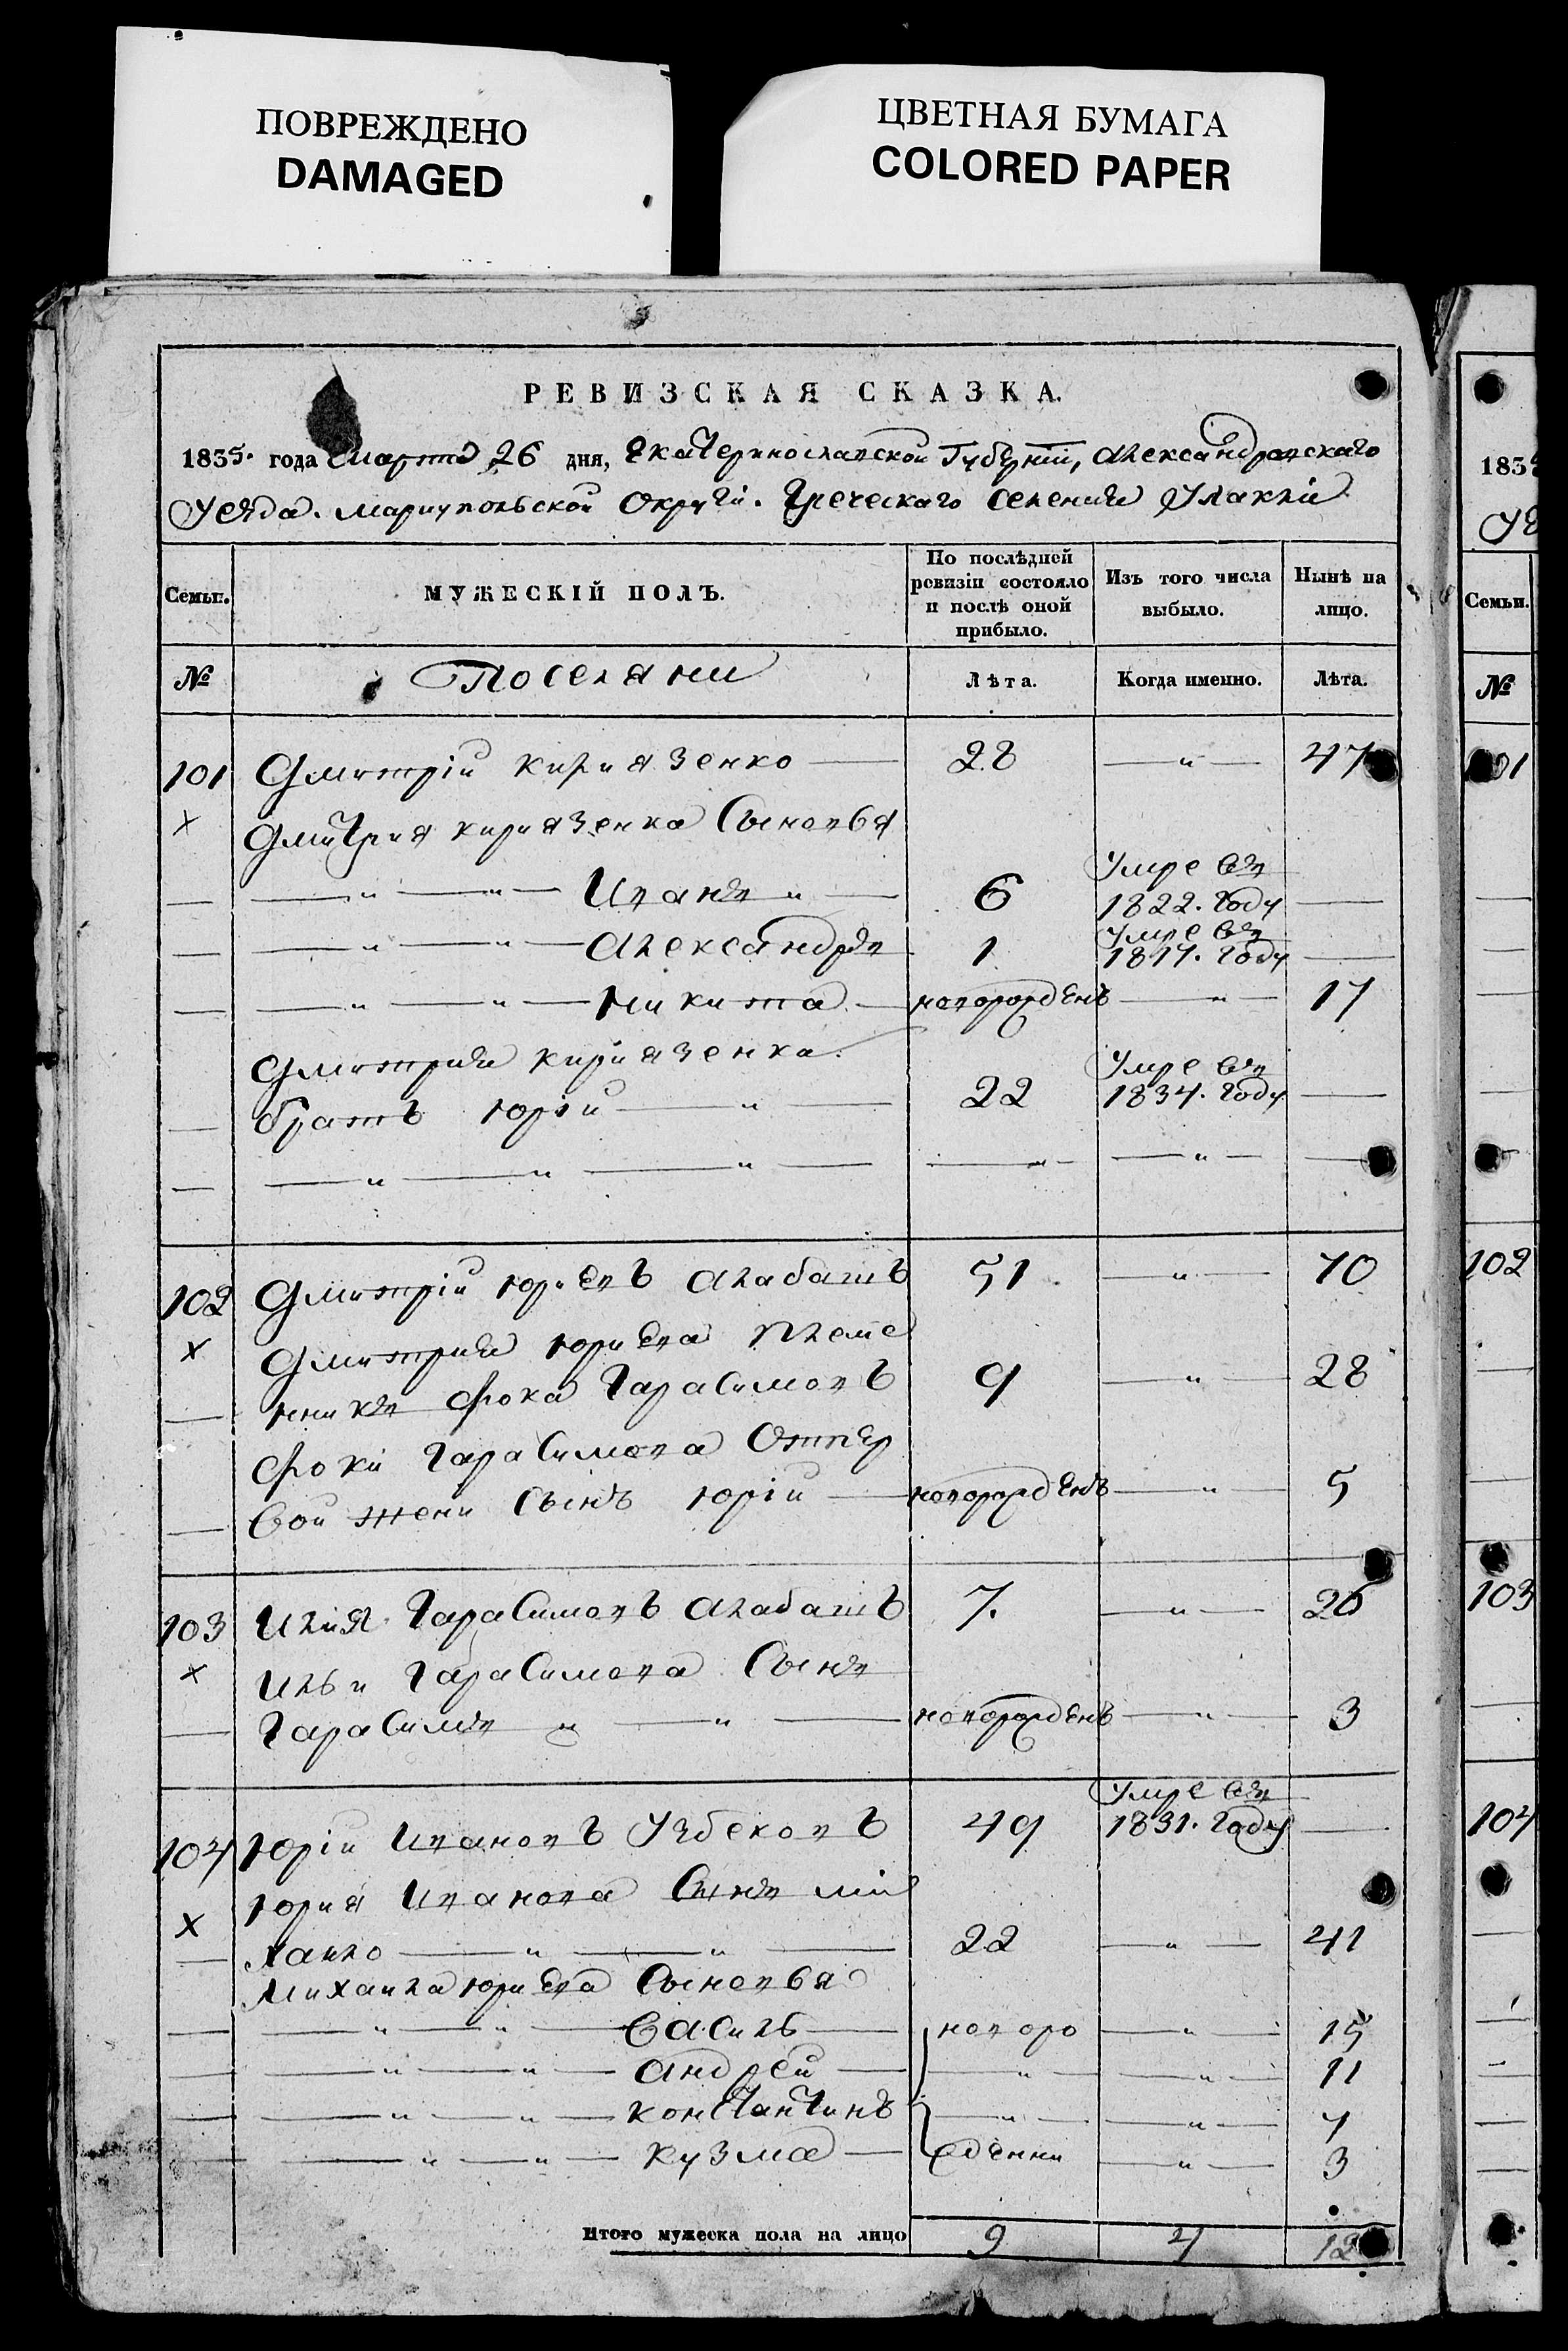 ПОВРЕЖДЕНО
DAMAGED
ЦВЕТНАЯ БУМАГА
COLORED PAPER
РЕВИЗСКАЯ СКАЗКА.
1835. года Марта 26 дня, Екатеринославской Губерніи, Александровскаго
Уезда. Мариупольской Округи. Греческаго Селения Улаклы
Семьи. МУЖЕСКІЙ ПОЛЪ. По послѣдней ревизіи состояло и послѣ оной прибыло. Изъ того числа выбыло. Нынѣ на лицо.
№ Поселяни Лѣта. Когда именно. Лѣта.
101 Дмитрій Кириязенко 28 — " — 47
× Дмитрия Кириязенка Сыновья
— " — " — Иванъ " — 6 Умре въ 1822. Году —
— " — " — Александръ 1 Умре въ 1817. Году —
— " — " — Никита — новорожденъ — " — 17
Дмитрия Кириязенка
братъ Юрій — " — 22 Умре въ 1834. Году —
— " — " — " — — " — — " — —
102 Дмитрій Юриевъ Алабашъ 51 — " — 70
× Дмитрия Юриева племе
нникъ Фока Гарасимовъ 9 — " — 28
Фоки Гарасимова Отпер
вой жени Сынъ Юрій — новорожденъ — " — 5
103 Илия Гарасимовъ Алабашъ 7. — " — 26
× Ильи Гарасимова Сынъ
Гарасимъ " — " — новорожденъ — " — 3
104 Юрій Ивановъ Узбековъ 49 Умре въ 1831. Году —
× Юрия Иванова Сынъ Ми
хайло — " — " — 22 — " — 41
Михаила Юриева Сыновья
— " — " — Василь — новоро — " — 15
— " — " — Андрей — — " — — " — 11
— " — " — Константинъ — " — — " — 7
— " — " — Кузма — жденни — " — 3
Итого мужеска пола на лицо 9 4 12
183
Уе
Семьи.
№
101
102
103
104